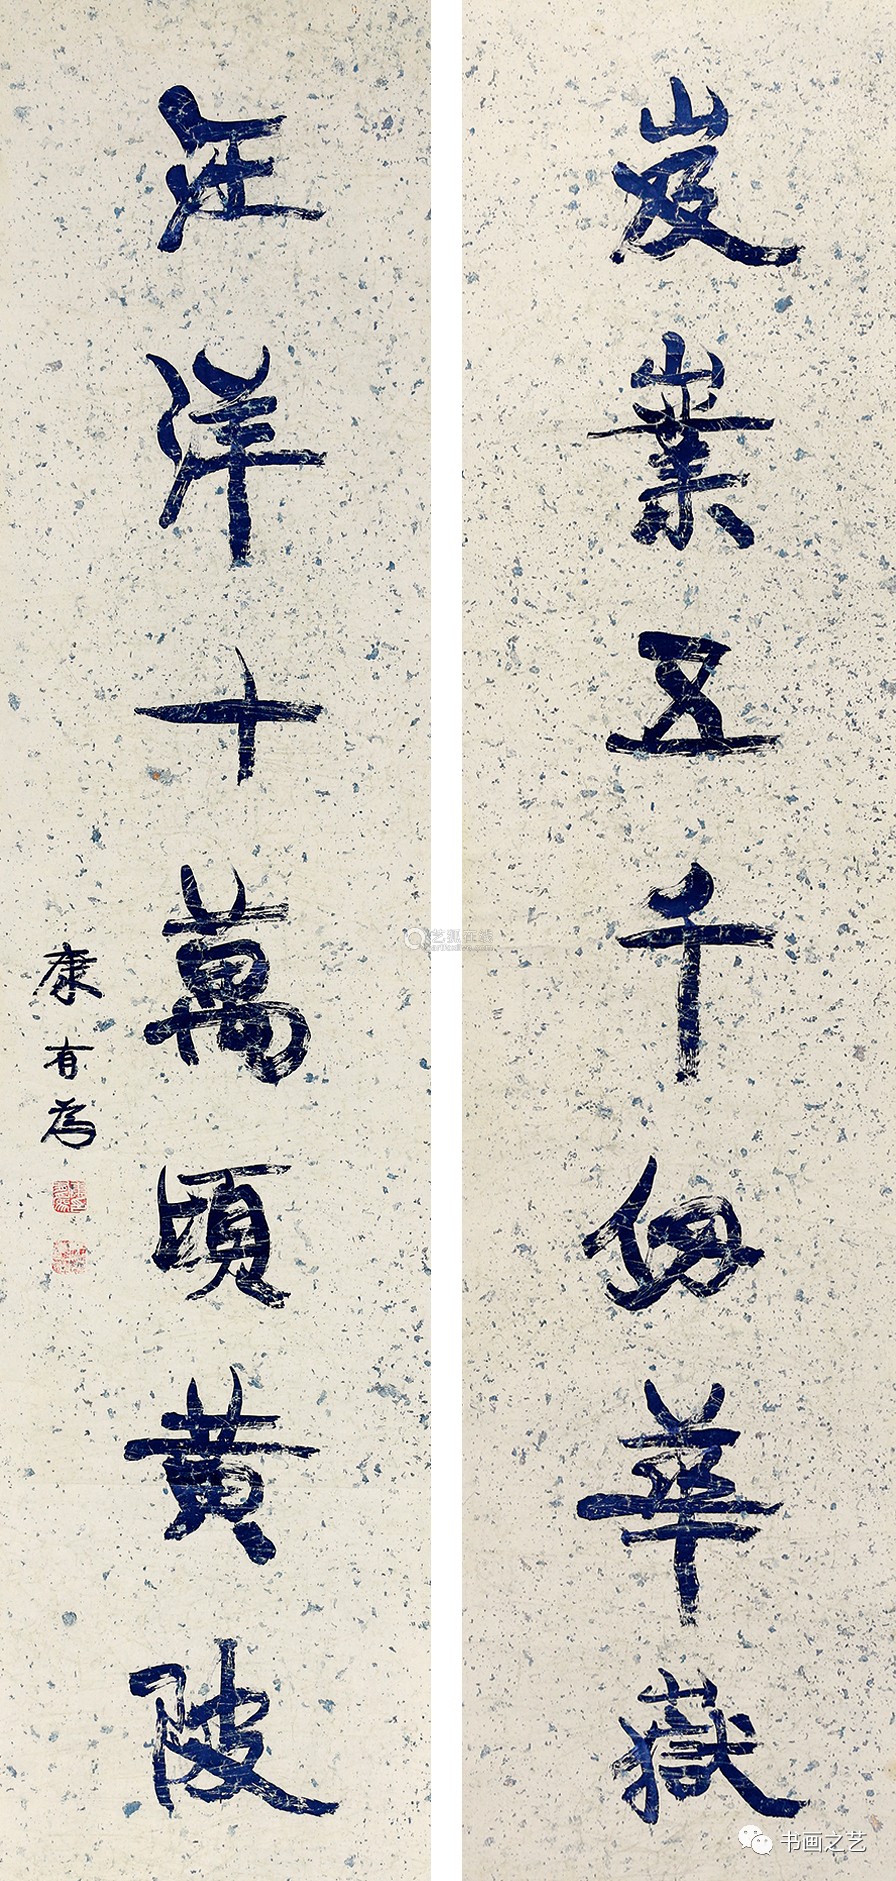 岌嶪五千仞華嶽
汪洋十萬頃黃陂
康有為
艺狐在线
书画之艺